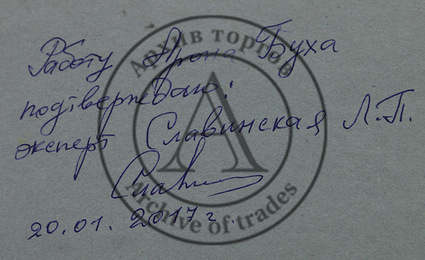 Работу Арона Буха
подтверждаю:
эксперт Славинская Л.П.
20.01.2017 г.
Архив торгов
A
Archive of trades